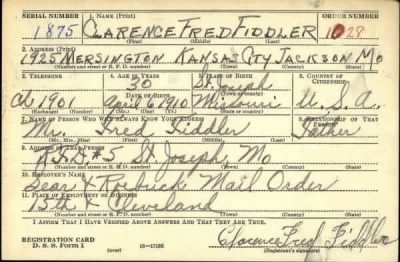 SERIAL NUMBER 1. NAME (Print) ORDER NUMBER
1875 CLARENCE FRED FIDDLER 1028
(First) (Middle) (Last)
2. ADDRESS (Print)
1925 MERSINGTON KANSAS CITY JACKSON MO
(Number and street or R. F. D. number) (Town) (County) (State)
3. TELEPHONE 4. AGE IN YEARS 5. PLACE OF BIRTH 6. COUNTRY OF CITIZENSHIP
30 St. Joseph
Ch 1901 April 6 1910 Missouri U.S.A.
(Exchange) (Number) (Mo.) (Day) (Yr.) (State or country)
7. NAME OF PERSON WHO WILL ALWAYS KNOW YOUR ADDRESS 8. RELATIONSHIP OF THAT PERSON
Mr. Fred Fiddler Father
(Mr., Mrs., Miss) (First) (Middle) (Last)
9. ADDRESS OF THAT PERSON
R.F.D. #5 St. Joseph, Mo
(Number and street or R. F. D. number) (Town) (County) (State)
10. EMPLOYER'S NAME
Sear & Roebuck Mail Order
11. PLACE OF EMPLOYMENT OR BUSINESS
15th & Cleveland
(Number and street or R. F. D. number) (Town) (County) (State)
I AFFIRM THAT I HAVE VERIFIED ABOVE ANSWERS AND THAT THEY ARE TRUE.
REGISTRATION CARD
D. S. S. Form 1 (over) 16—17105
Clarence Fred Fiddler
(Registrant's signature)